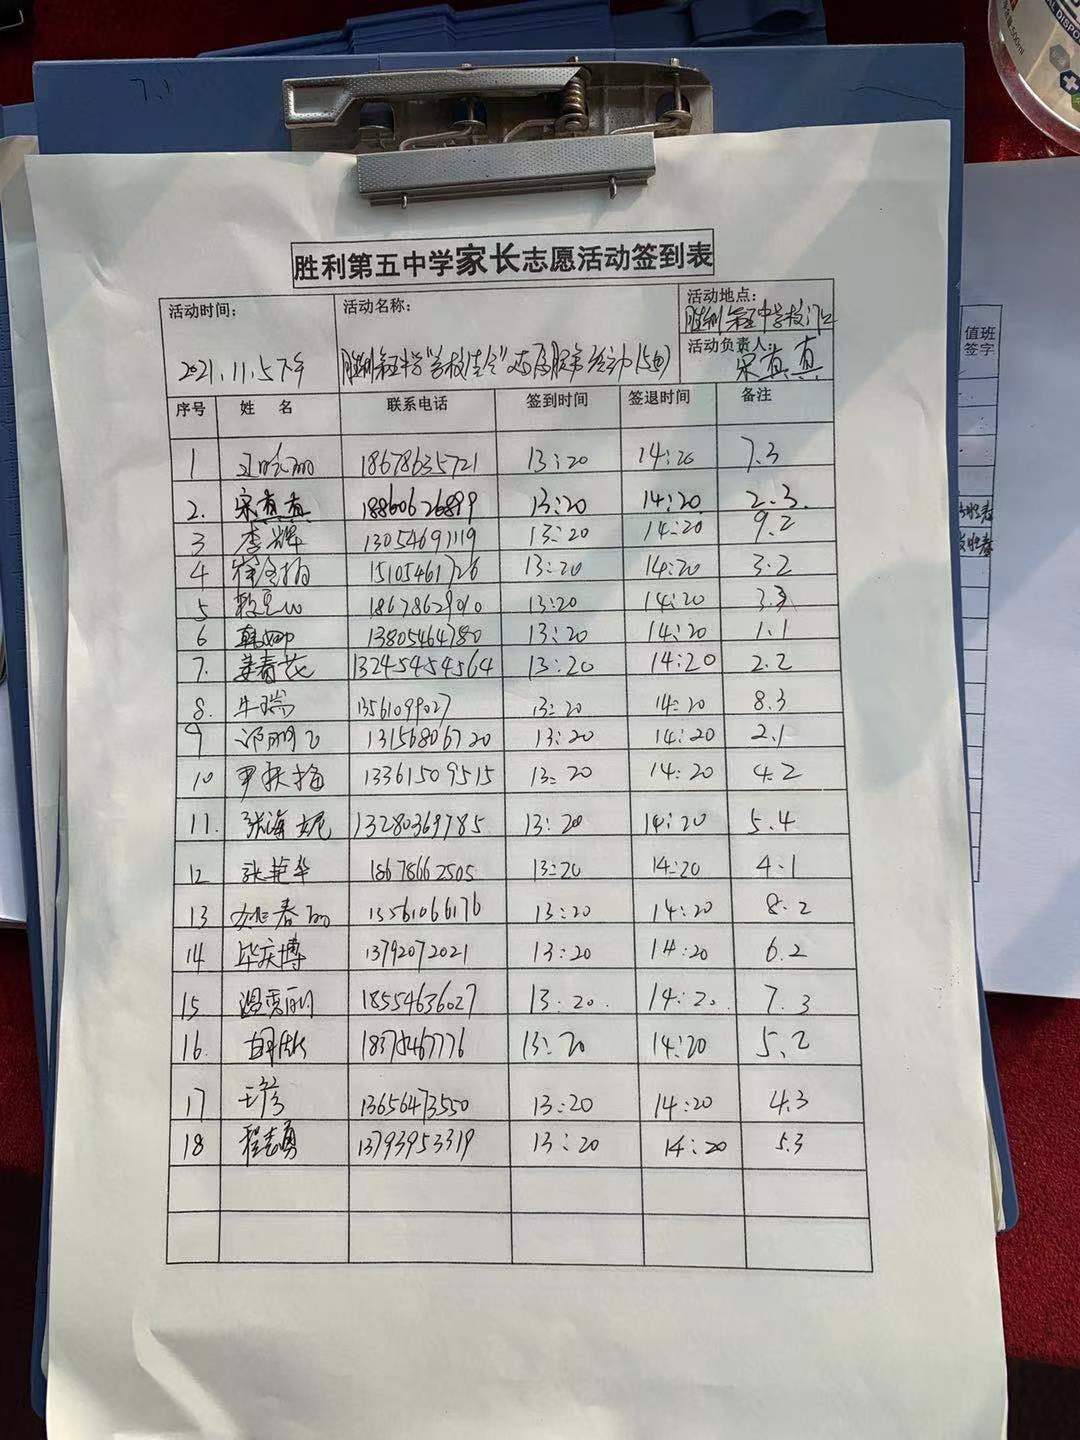 胜利第五中学家长志愿活动签到表
活动时间：
2021.11.5下午
活动名称：
活动地点：
胜利第五中学校门口
活动负责人：
宋真真
序号 姓 名 联系电话 签到时间 签退时间 备注
1 18678635721 13:20 14:20 7.3
2. 宋真真 18860626899 13:20 14:20 2.3.
3 李辉 13054691119 13:20 14:20 9.2
4 15105461726 13:20 14:20 3.2
5 18678629010 13:20 14:20 3.3
6 韩娜 13805464780 13:20 14:20 1.1
7. 姜春花 13245454564 13:20 14:20 2.2
8. 牛瑞 13561099027 13:20 14:20 8.3
9 13156806720 13:20 14:20 2.1
10 尹扶梅 13361509515 13:20 14:20 4.2
11. 张海妮 13280369785 13:20 14:20 5.4
12 张艳华 18678662505 13:20 14:20 4.1
13 姚春丽 13561066176 13:20 14:20 8.2
14 毕庆博 13792072021 13:20 14:20 6.2
15 温秀丽 18554636027 13:20. 14:20. 7.3
16. 13:20 14:20 5.2
17 王彦 13656473550 13:20 14:20 4.3
18 程志勇 13793953319 13:20 14:20 5.3
值班
签字